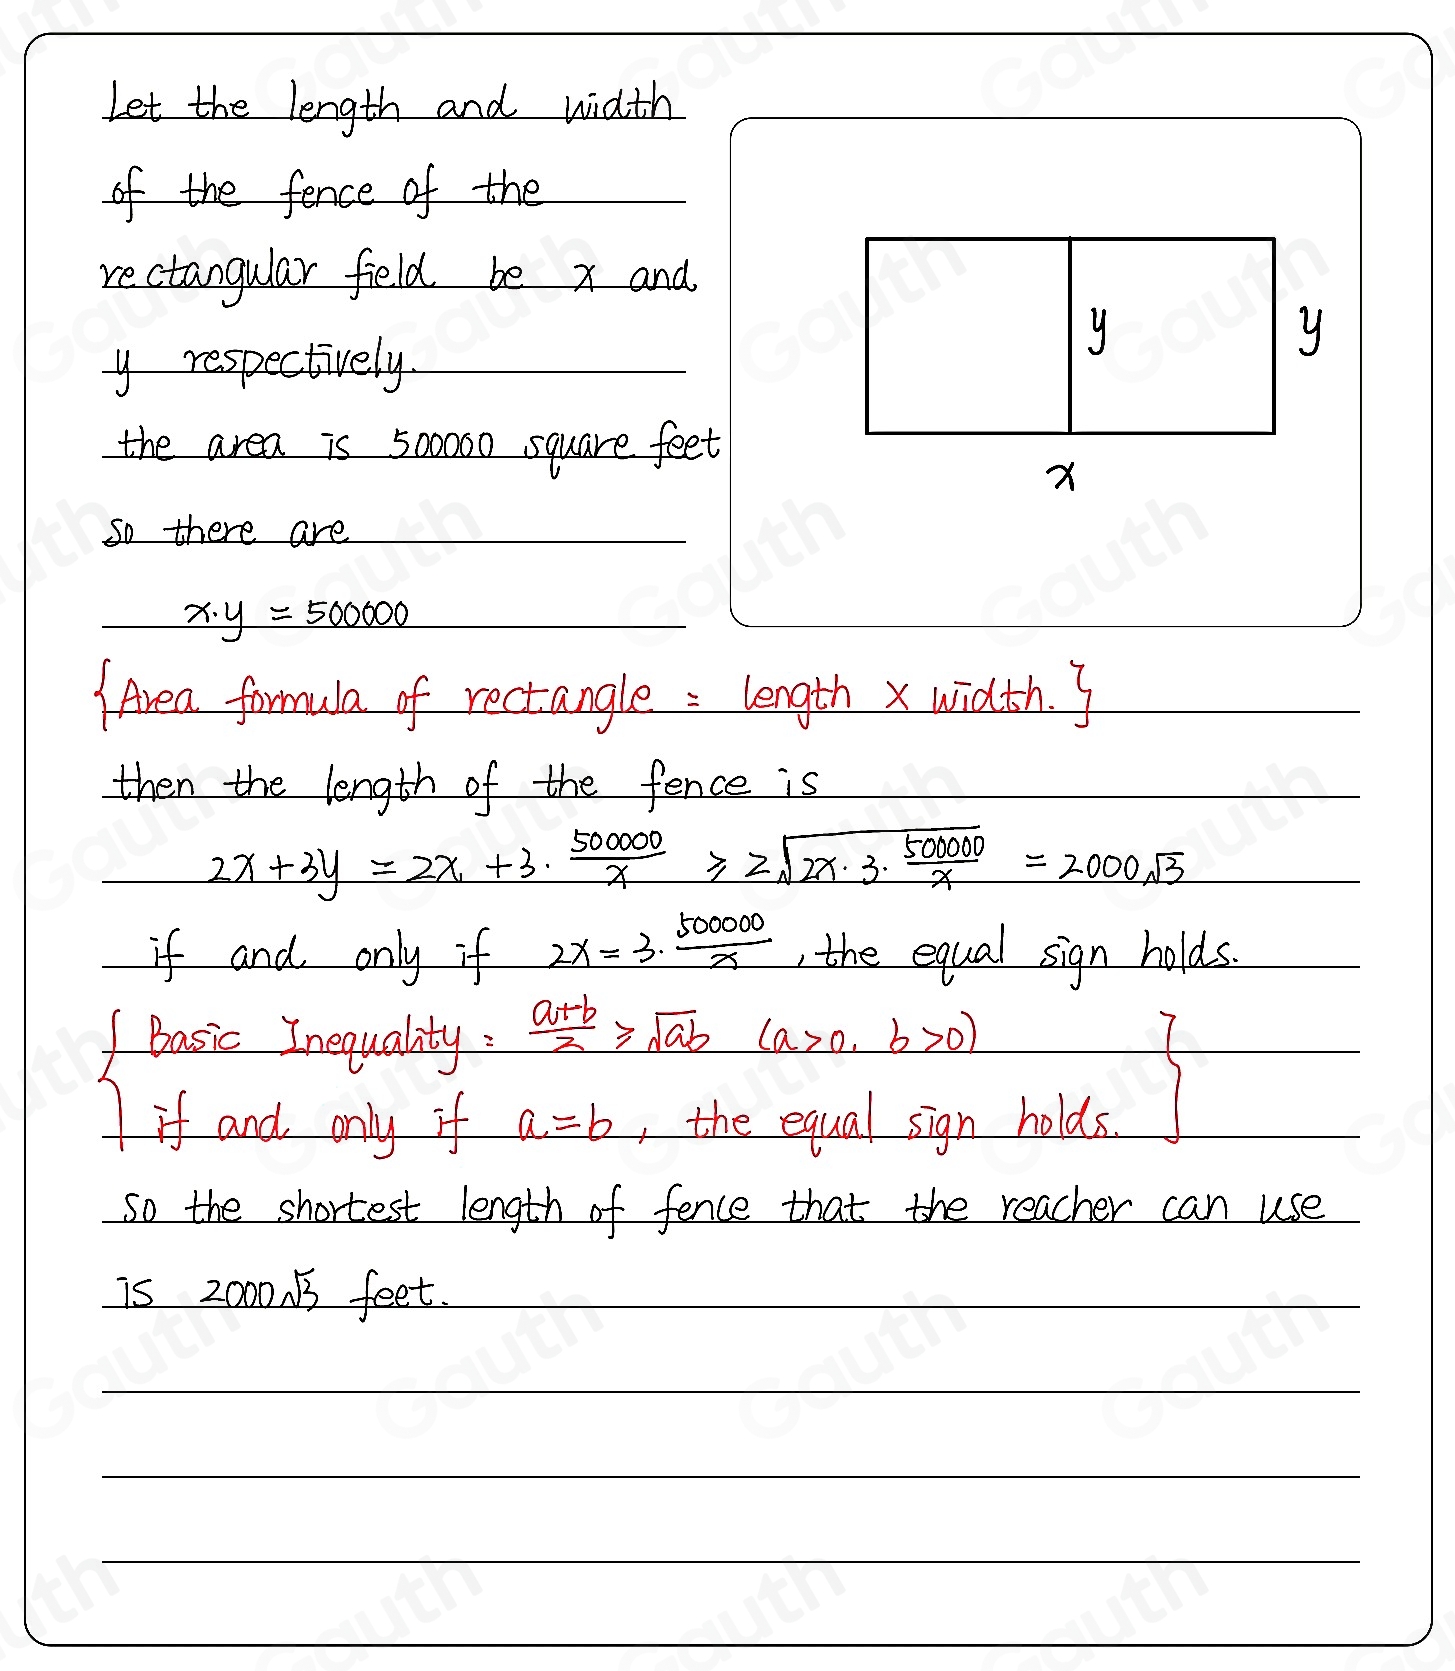 Let the length and width
of the fence of the
rectangular field be x and
y respectively.
the area is 500000 square feet
so there are
x·y = 500000
y
y
x
{Area formula of rectangle = length × width.}
then the length of the fence is
2x+3y = 2x+3·500000/x ≥ 2√(2x·3·500000/x) = 2000√3
if and only if 2x=3·500000/x, the equal sign holds.
{Basic Inequality: (a+b)/2 ≥ √ab (a>0, b>0)
if and only if a=b, the equal sign holds.}
so the shortest length of fence that the reacher can use
is 2000√3 feet.